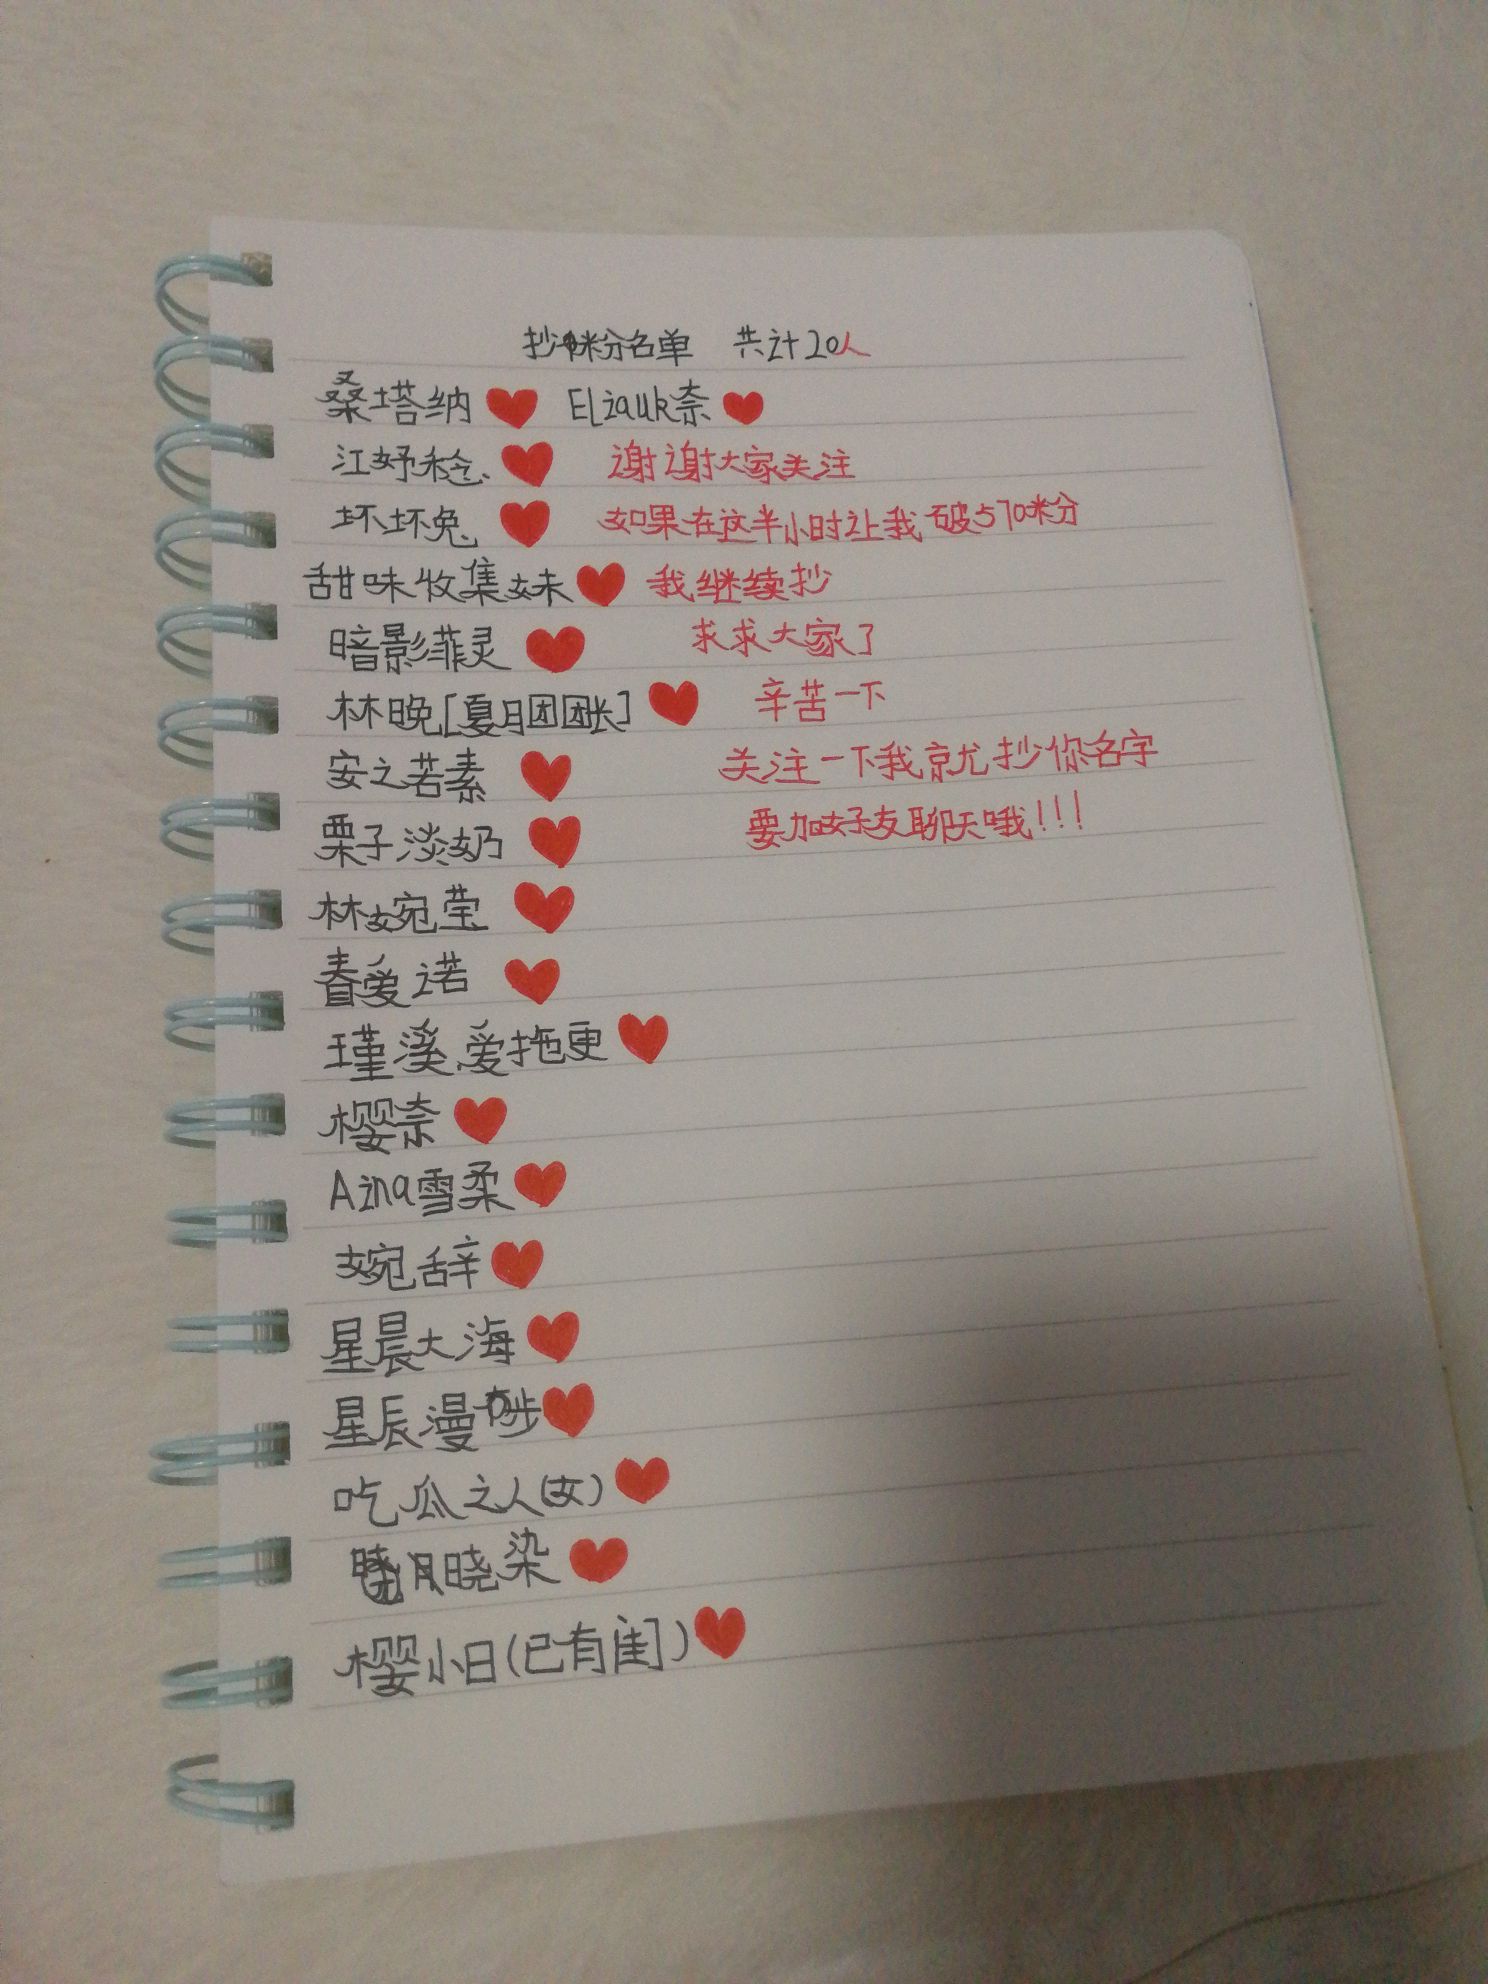 抄米分名单 共计20人
桑塔纳 ❤ Eliauk奈 ❤
江妤稔 ❤ 谢谢大家关注
坏坏兔 ❤ 如果在这半小时让我破570米分
甜味收集妹 ❤ 我继续抄
暗影菲灵 ❤ 求求大家了
林晚[夏月团团长] ❤ 辛苦一下
安之若素 ❤ 关注一下我就抄你名字
栗子淡奶 ❤ 要加好友聊天哦!!!
林婉莹 ❤
春爱诺 ❤
瑾溪爱拖更 ❤
樱奈 ❤
Aina雪柔 ❤
婉辞 ❤
星晨大海 ❤
星辰漫步 ❤
吃瓜之人(女) ❤
月晓染 ❤
樱小日(已有闺) ❤